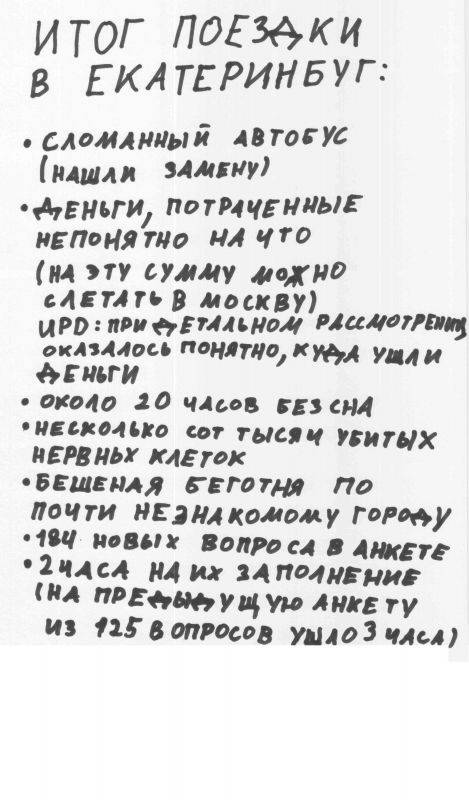 ИТОГ ПОЕЗДКИ
В ЕКАТЕРИНБУГ:
• СЛОМАННЫЙ АВТОБУС
(НАШЛИ ЗАМЕНУ)
• ДЕНЬГИ, ПОТРАЧЕННЫЕ
НЕПОНЯТНО НА ЧТО
(НА ЭТУ СУММУ МОЖНО
СЛЕТАТЬ В МОСКВУ)
UPD: ПРИ ДЕТАЛЬНОМ РАССМОТРЕНИИ
ОКАЗАЛОСЬ ПОНЯТНО, КУДА УШЛИ
ДЕНЬГИ
• ОКОЛО 20 ЧАСОВ БЕЗ СНА
• НЕСКОЛЬКО СОТ ТЫСЯЧ УБИТЫХ
НЕРВНЫХ КЛЕТОК
• БЕШЕНАЯ БЕГОТНЯ ПО
ПОЧТИ НЕЗНАКОМОМУ ГОРОДУ
• 184 НОВЫХ ВОПРОСА В АНКЕТЕ
• 2 ЧАСА НА ИХ ЗАПОЛНЕНИЕ
(НА ПРЕДЫДУЩУЮ АНКЕТУ
ИЗ 125 ВОПРОСОВ УШЛО 3 ЧАСА)